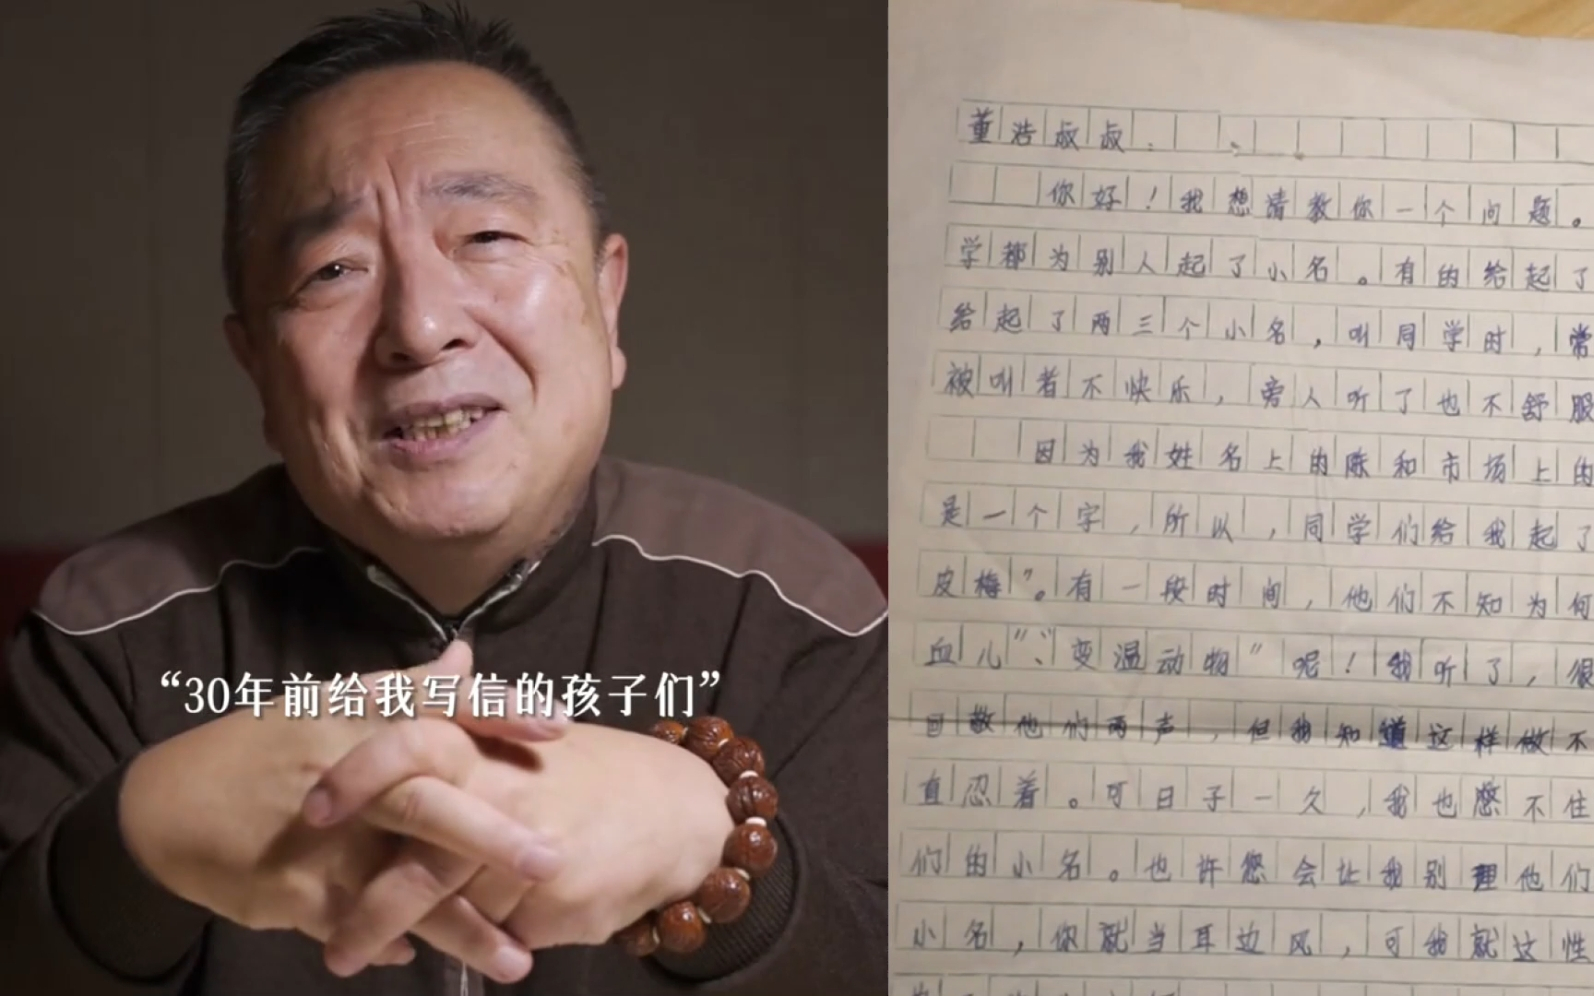 “30年前给我写信的孩子们”
董浩叔叔:
你好!我想请教你一个问题。
学都为别人起了小名。有的给起了
给起了两三个小名,叫同学时,常
被叫者不快乐,旁人听了也不舒服
因为我姓名上的陈和市场上的
是一个字,所以,同学们给我起了
皮梅”。有一段时间,他们不知为何
血儿”、“变温动物”呢!我听了,很
回敬他们两声,但我知道这样做不
直忍着。可日子一久,我也憋不住
们的小名。也许您会让我别理他们
小名,你就当耳边风,可我就这性